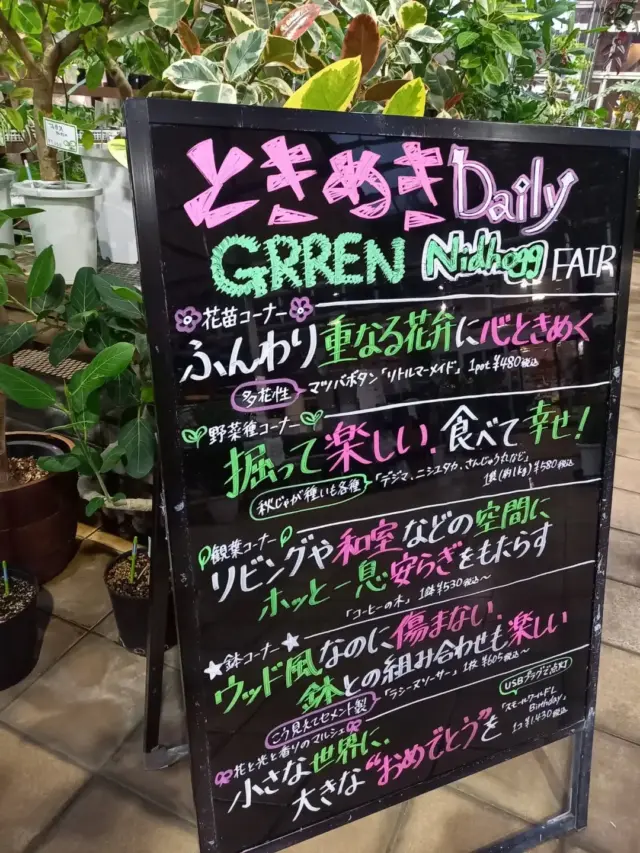 ときめきDaily
GRREN Nidhogg FAIR
花苗コーナー
ふんわり重なる花弁に心ときめく
多花性 マツバボタン「リトルマーメイド」 1pot ¥480税込
野菜種コーナー
掘って楽しい、食べて幸せ!
秋じゃが種いも各種 「デジマ、ニシユタカ、さんじゅう丸など」
1袋(約1kg)¥580税込
観葉コーナー
リビングや和室などの空間に
ホッと一息安らぎをもたらす
「コーヒーの木」 1鉢¥530税込~
鉢コーナー
ウッド風なのに傷まない、
鉢との組み合わせも楽しい
こう見えてセメント製 「ラシーヌソーサー」 1枚 ¥605税込~
花と光と香りのマルシェ
USBプラグで点灯
小さな世界に、
「スモールワールドL Birthday」
大きな“おめでとう”を
1コ ¥1,430税込